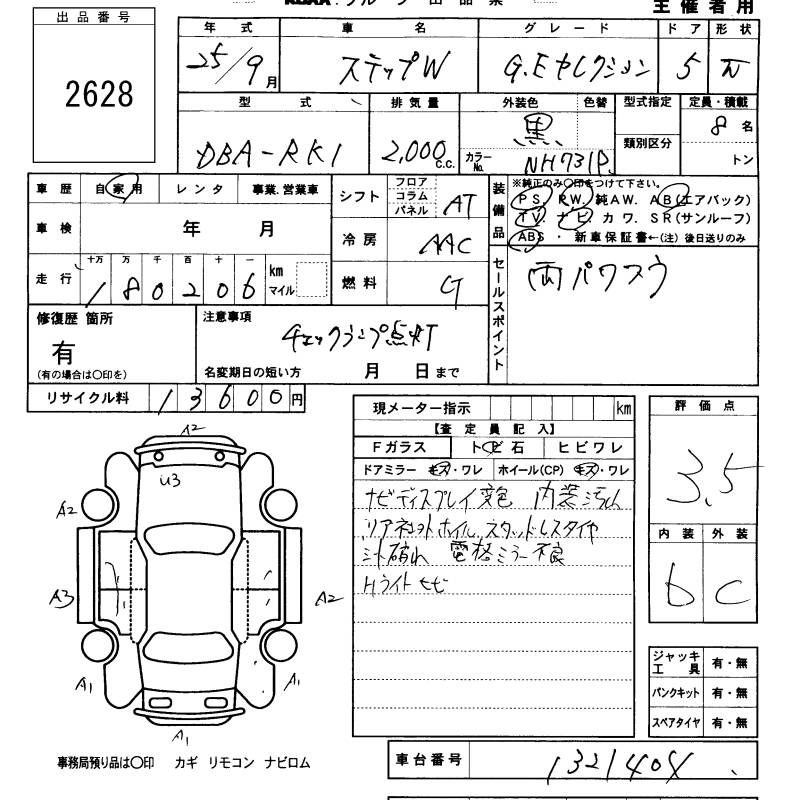 主催者用
出品番号
2628
年式 車名 グレード ドア 形状
25/9月 ステップW G.Eセレクション 5
型式 排気量 外装色 色替 型式指定 定員・積載
DBA-RK1 2,000c.c. 黒 類別区分 8名
カラーNo. NH731P トン
車歴 自家用 レンタ 事業.営業車
車検 年 月
走行 十万 万 千 百 十 一 km マイル
180206
シフト フロア コラム パネル AT
冷房 AAC
燃料 G
装備品
※純正のみ○印をつけて下さい。
PS. PW. 純AW. AB(エアバック)
TV. ナビ カワ. SR(サンルーフ)
ABS ・ 新車保証書←(注) 後日送りのみ
セールスポイント
両パワスラ
修復歴 箇所
有
(有の場合は○印を)
注意事項
チェックランプ点灯
名変期日の短い方 月 日まで
リサイクル料 13600円
現メーター指示 km
【査定員記入】
Fガラス トビ石 ヒビワレ
ドアミラー キズ・ワレ ホイール(CP) キズ・ワレ
ナビディスプレイ変色 内装汚れ
リアネヨトホイル、スタットレスタイヤ
ミト破れ 電格ミラー不良
Hライトヒビ
評価点
3.5
内装 外装
b C
ジャッキ工具 有・無
パンクキット 有・無
スペアタイヤ 有・無
A2
U3
A2
A3
A2
A1
A1
A1
事務局預り品は○印 カギ リモコン ナビロム
車台番号 1321404